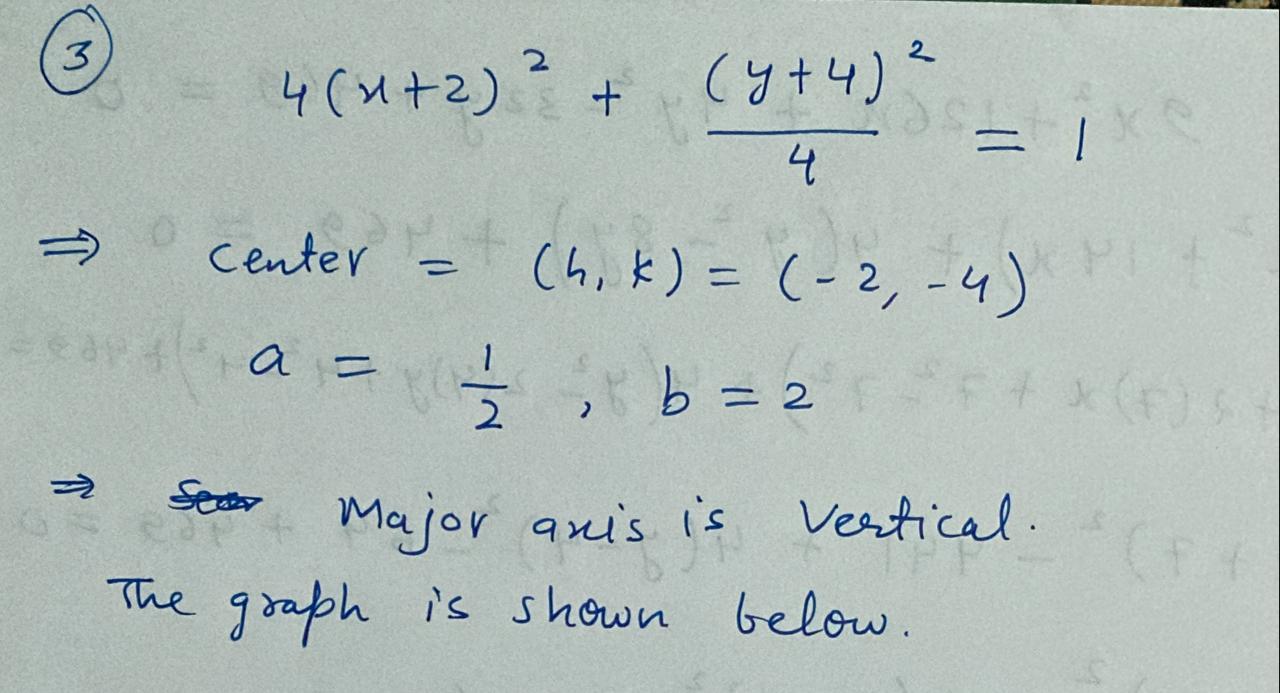 ③
4(x+2)² + (y+4)²/4 = 1
⇒ center = (h, k) = (-2, -4)
a = 1/2 , b = 2
⇒ Major axis is vertical.
The graph is shown below.